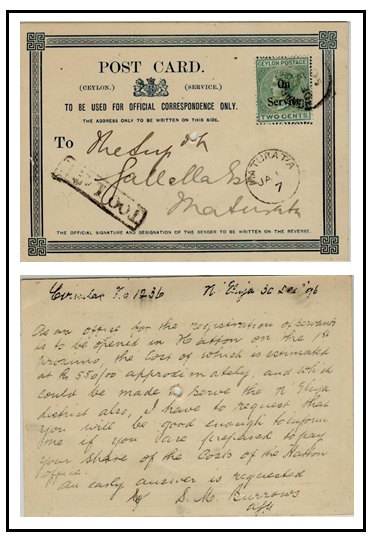 POST CARD.
(CEYLON.) (SERVICE.)
TO BE USED FOR OFFICIAL CORRESPONDENCE ONLY.
THE ADDRESS ONLY TO BE WRITTEN ON THIS SIDE.
CEYLON POSTAGE
On
Service
TWO CENTS
To
The Supdt
Gallella Est
Maturata
MATURATA
JA
7
THE OFFICIAL SIGNATURE AND DESIGNATION OF THE SENDER TO BE WRITTEN ON THE REVERSE.
Circular No 1236 N' Eliya 30 Dec 96
As an office for the registration of servants
is to be opened in Hatton on the 1st
proximo, the cost of which is estimated
at Rs 550/00 approximately, and which
could be made to serve the N' Eliya
district also, I have to request that
you will be good enough to inform
me if you are prepared to pay
your share of the costs of the Hatton
office.
An early answer is requested
S. M. Burrows